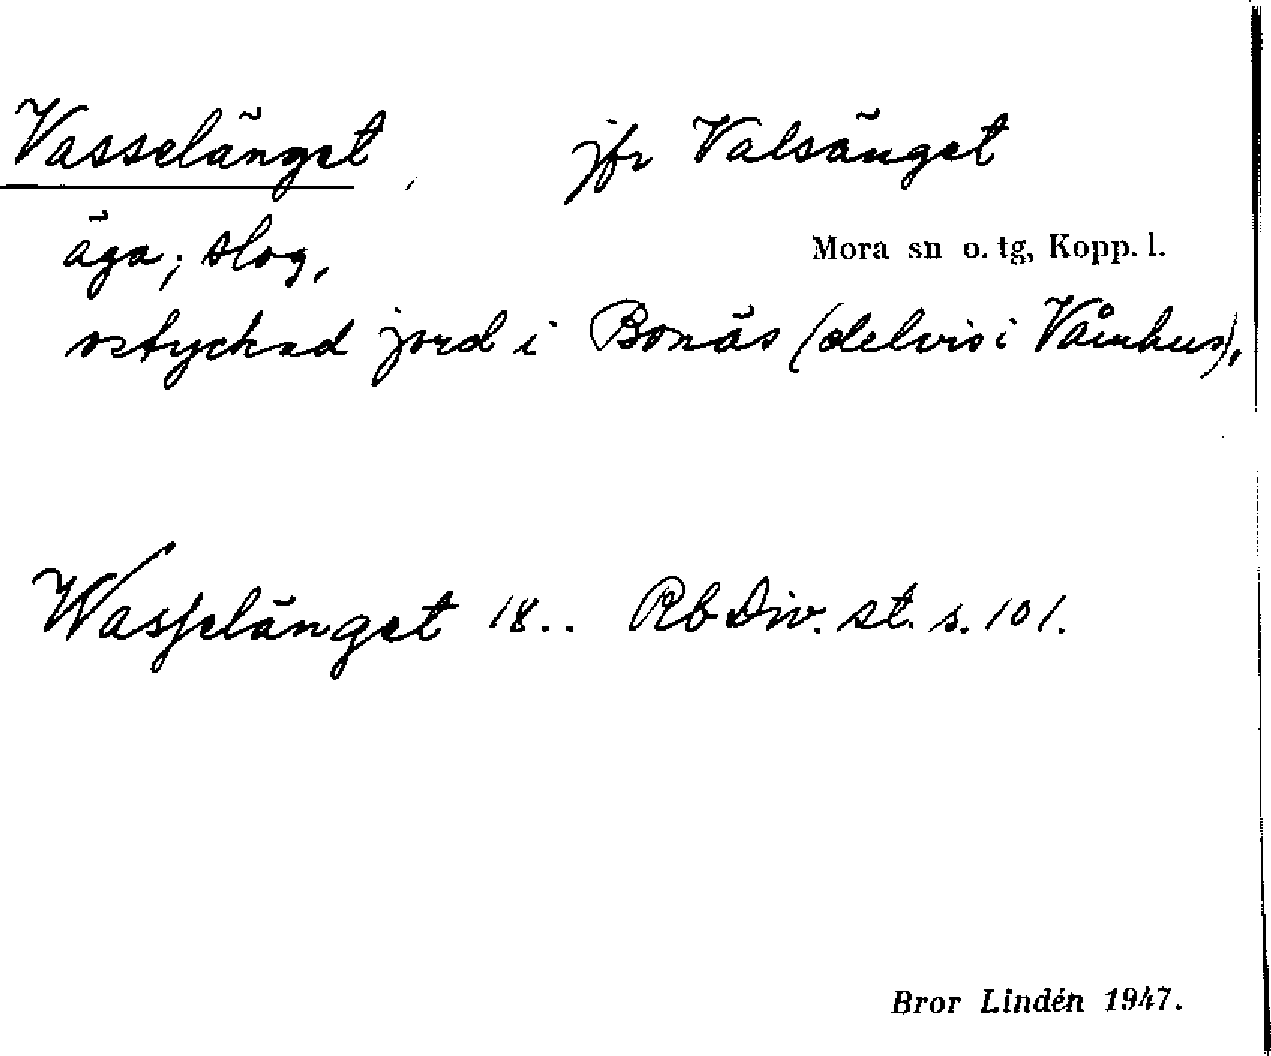 Vasselänget, jfr Valsänget
äga; slog, Mora sn o. tg, Kopp. l.
ostyckad jord i Bonäs (delvis i Våmhus),
Wasselänget 18.. Rb Div. st. s. 101.
Bror Lindén 1947.